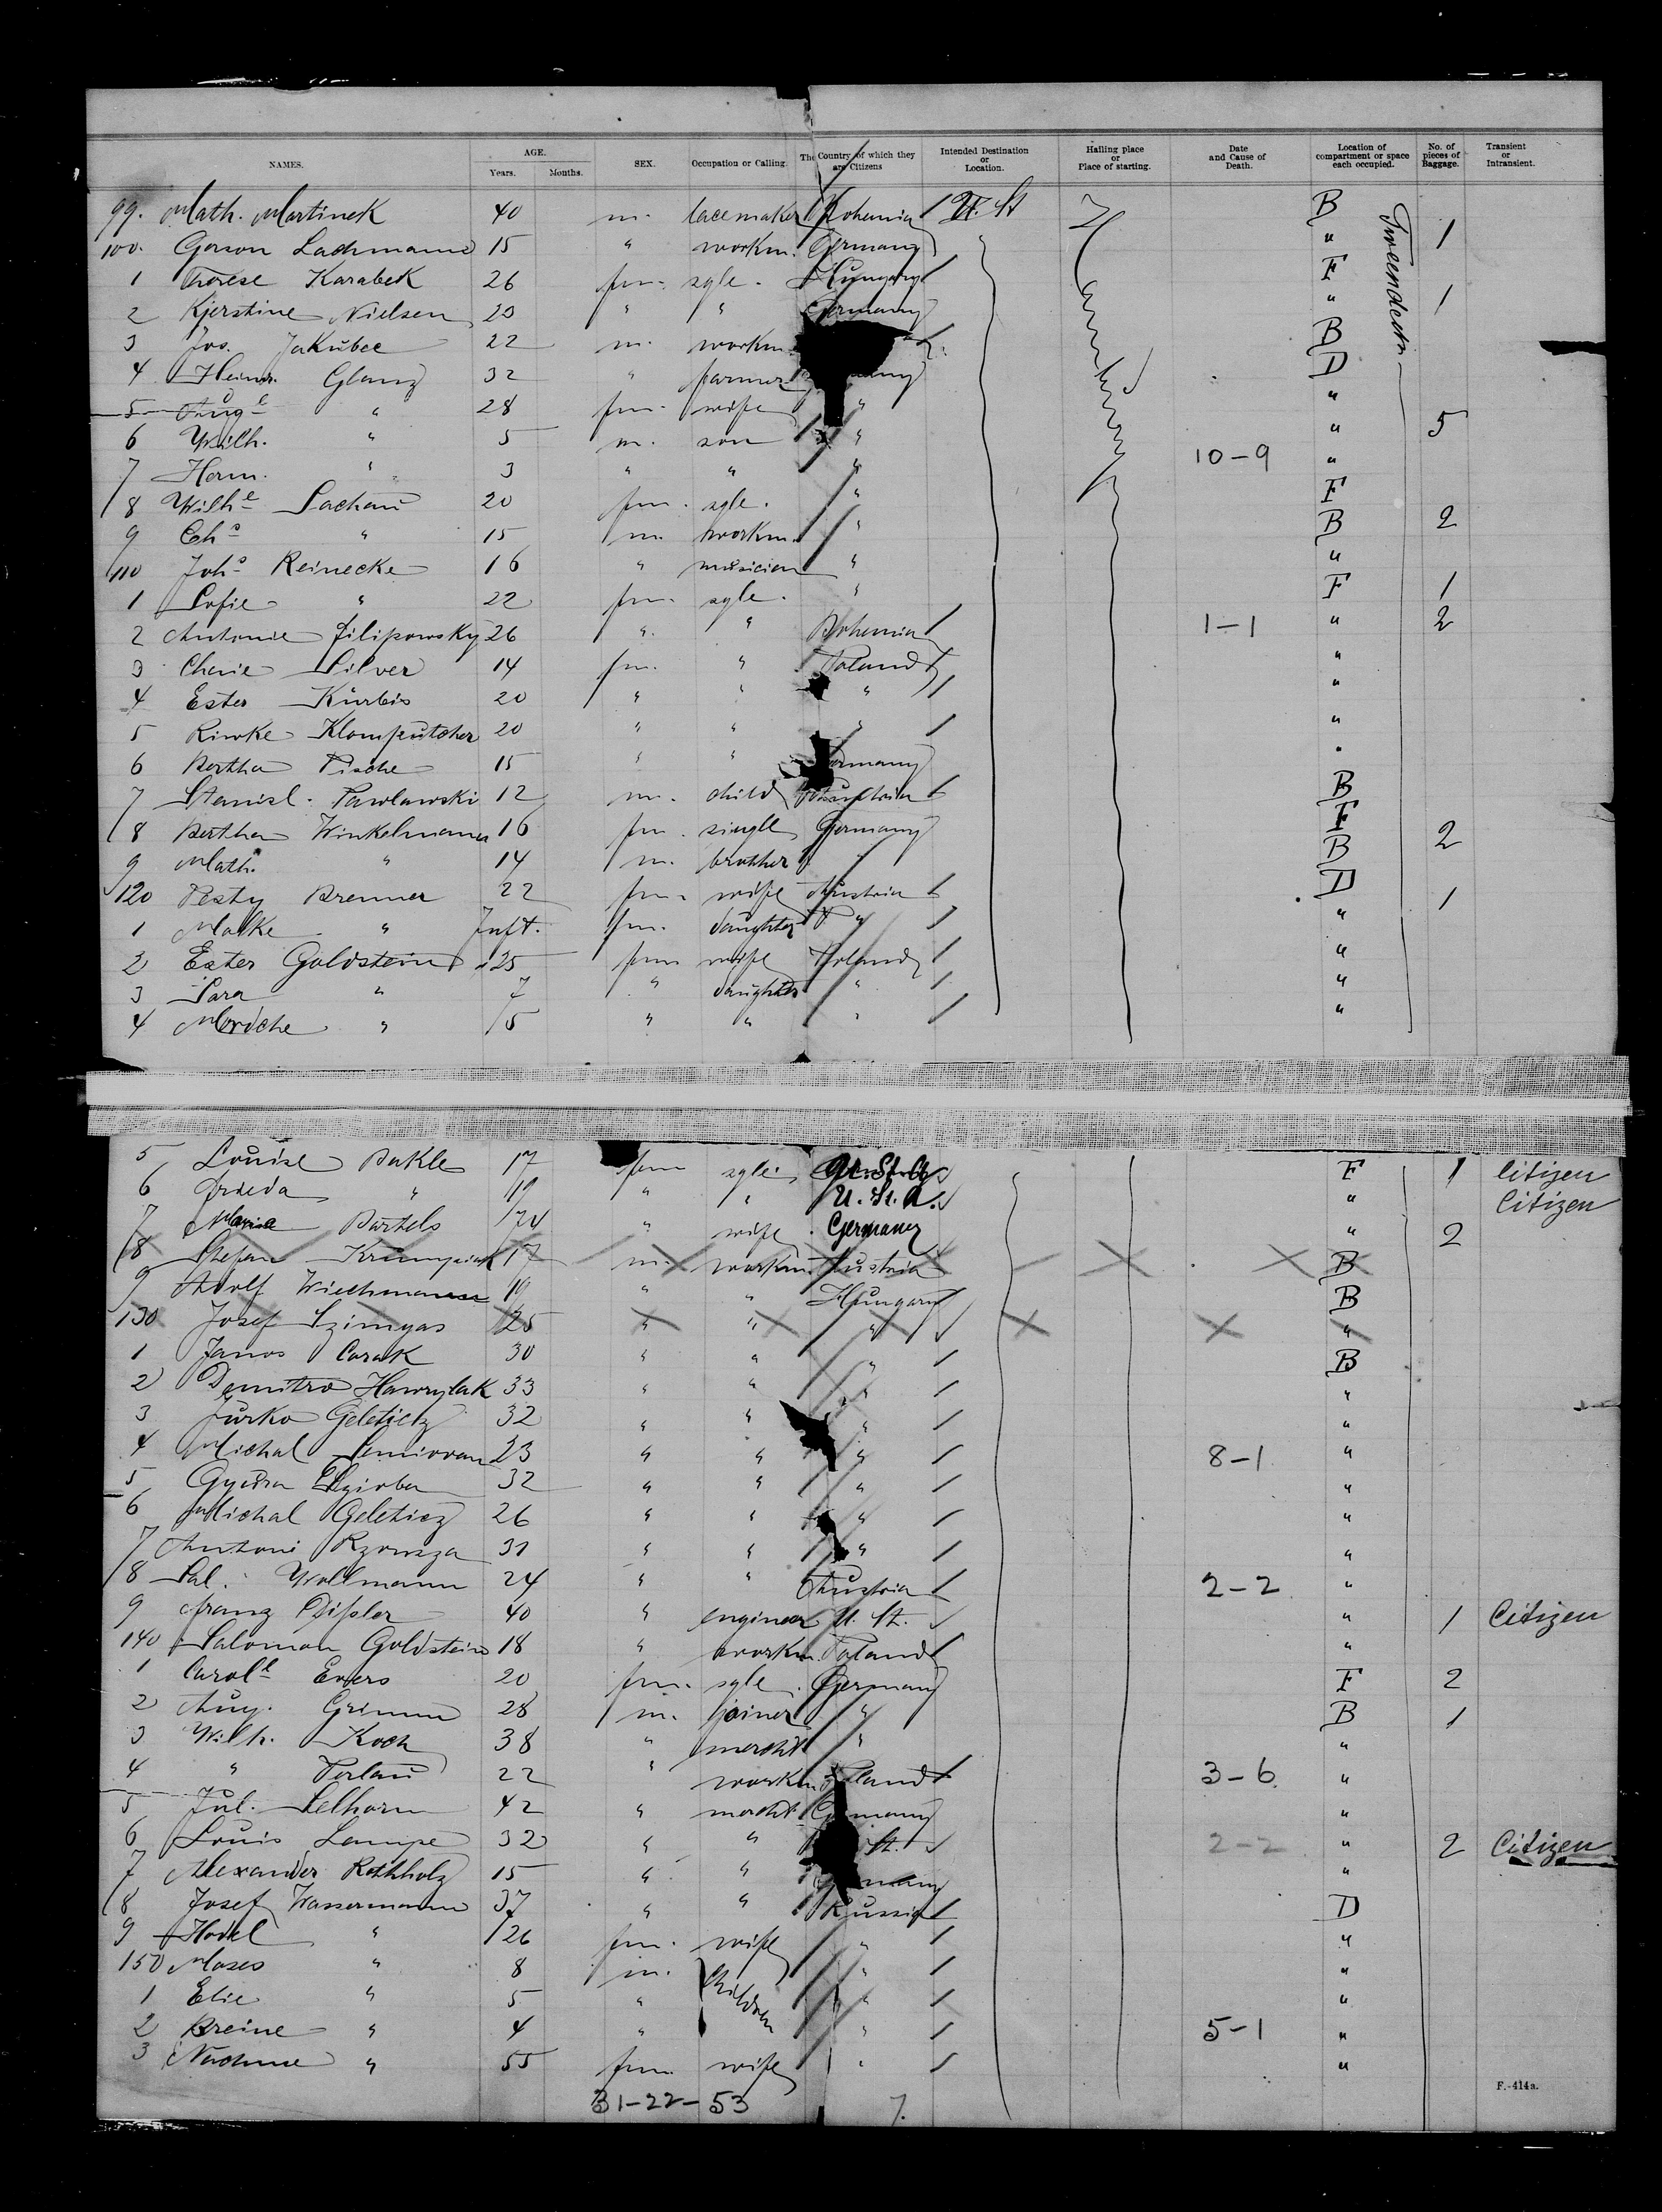 NAMES. AGE. Years. Months. SEX. Occupation or Calling. The Country of which they are Citizens Intended Destination or Location. Hailing place or Place of starting. Date and Cause of Death. Location of compartment or space each occupied. No. of pieces of Baggage. Transient or Intransient.
99. Math. Martinek 40 m. lacemaker Bohemia U. St B Tweendeck
100. Gerson Lachmann 15 " workm. Germany " " 1
1 Therese Karabek 26 fm. sgle. Hungary F
2 Kjerstine Nielsen 20 " " Germany " 1
3 Jos. Jakubec 22 m. workm. B
4 Heinr. Glanz 32 " farmer D
5 Aug.e " 28 fm. wife " "
6 Wilh. " 5 m. son " " 5
7 Herm. " 3 " " " 10-9 "
8 Wilhe Sachau 20 fm. sgle. " F
9 Chs " 15 m. workm. " B 2
110 Johs Reinecke 16 " musician " "
1 Sofie " 22 fm. sgle. " F 1
2 Antonie Filipowsky 26 " " Bohemia 1-1 " 2
3 Cherie Silver 14 fm. " Poland "
4 Ester Kürbis 20 " " " "
5 Riwke Klomputcher 20 " " " "
6 Bertha Pische 15 " " Germany "
7 Stanisl. Pawlawski 12 m. child Austria B
8 Bertha Winkelmann 16 fm. single Germany F
9 Math. " 14 m. brother " B 2
120 Pesty Brenner 22 fm. wife Austria D
1 Malke " Inft. fm. daughter " " 1
2 Ester Goldstein 25 fm wife Poland "
3 Sara " 7 " daughter " "
4 Mordche " 5 " " " "
5 Louise Bukle 17 fm sgle. F 1 Citizen
6 Frieda " 19 " " U. St. A. " Citizen
7 Marie Bartels 74 " wife Germany " 2
8 Stefan 17 m. workm. Austria B
9 Adolf Wiechmann 19 " " Hungary B
130 Josef Szimyas 25 " " " "
1 Janos Carak 30 " " " B
2 Demitro Hawrylak 33 " " " "
3 Jurko Geleticz 32 " " " "
4 Michal 23 " " " 8-1 "
5 32 " " " "
6 Michal Geleticz 26 " " " "
7 Antoni Rzonsza 31 " " " "
8 Sal. Wollmann 24 " " Austria 2-2 "
9 Franz Dißler 40 " engineer U. St. " 1 Citizen
140 Salomon Goldstein 18 " workm. Poland "
1 Carole Evers 20 fm. sgle. Germany F 2
2 Aug. Grimm 28 m. joiner " B 1
3 Wilh. Koch 38 " mercht " "
4 " Perlau 22 " workm. Poland 3-6 "
5 Jul. Selhorn 42 " mercht Germany "
6 Louis Lampe 32 " " St. 2-2 " 2 Citizen
7 Alexander Rothholz 15 " " Germany "
8 Josef Wassermann 37 " " Russia D
9 Hodel " 26 fm. wife " "
150 Moses " 8 m. Children " "
1 Elie " 5 " " "
2 Breine " 4 " " 5-1 "
3 Nachme " 55 fm. wife " "
31-22-53 7.
F.-414a.